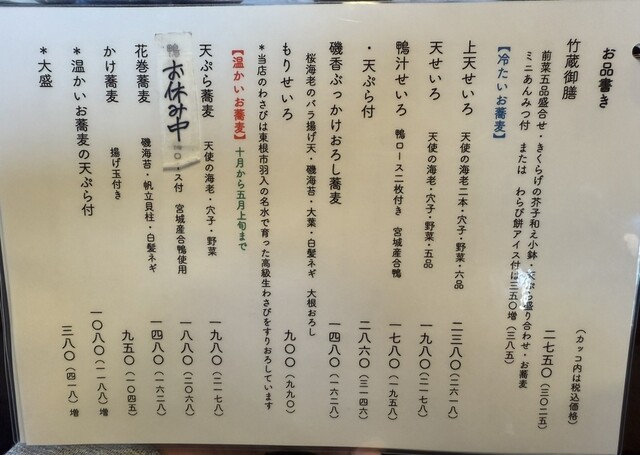 お品書き
(カッコ内は税込価格)
竹蔵御膳 二七五〇(三〇二五)
前菜五品盛合せ・きくらげの芥子和え小鉢・天ぷら盛り合わせ・お蕎麦
ミニあんみつ付 または わらび餅アイス付は三五〇増(三八五)
【冷たいお蕎麦】
上天せいろ 天使の海老二本・穴子・野菜・六品 二三八〇(二六一八)
天せいろ 天使の海老・穴子・野菜・五品 一九八〇(二一七八)
鴨汁せいろ 鴨ロース二枚付き 宮城産合鴨 一七八〇(一九五八)
・天ぷら付 二八六〇(三一四六)
磯香ぶっかけおろし蕎麦 一四八〇(一六二八)
桜海老のバラ揚げ天・磯海苔・大葉・白髪ネギ 大根おろし
もりせいろ 九〇〇(九九〇)
*当店のわさびは東根市羽入の名水で育った高級生わさびをすりおろしています
【温かいお蕎麦】十月から五月上旬まで
天ぷら蕎麦 天使の海老・穴子・野菜 一九八〇(二一七八)
鴨 お休み中 ロース付 宮城産合鴨使用 一八八〇(二〇六八)
花巻蕎麦 磯海苔・帆立貝柱・白髪ネギ 一四八〇(一六二八)
かけ蕎麦 揚げ玉付き 九五〇(一〇四五)
*温かいお蕎麦の天ぷら付 一〇八〇(一一八八)増
*大盛 三八〇(四一八)増